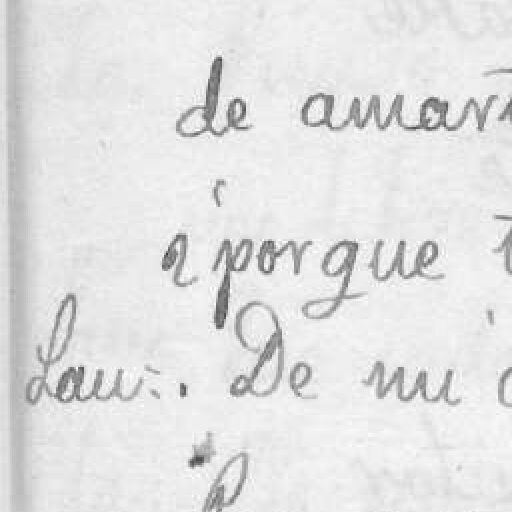 de amart
¿porque t
Lau:. De mi